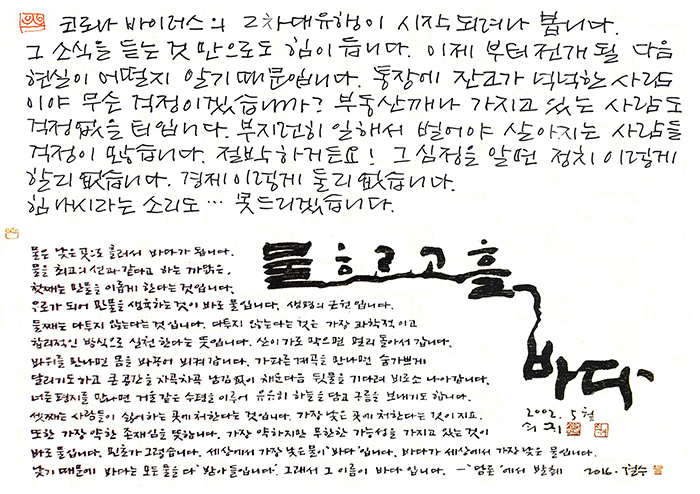 코로나 바이러스의 2차대유행이 시작되려나 봅니다.
그 소식을 듣는 것 만으로도 힘이 듭니다. 이제 부터 전개될 다음
현실이 어떨지 알기 때문입니다. 통장에 잔고가 넉넉한 사람
이야 무슨 걱정이겠습니까? 부동산깨나 가지고 있는 사람도
걱정없을 터입니다. 부지런히 일해서 벌어야 살아지는 사람들
걱정이 많습니다. 절박하거든요! 그 심정을 알면 정치 이렇게
할리 없습니다. 경제 이렇게 둘리 없습니다.
힘내시라는 소리도… 못드리겠습니다.
물은 낮은 곳으로 흘러서 바다가 됩니다.
물을 최고의 선과 같다고 하는 까닭은,
첫째는 만물을 이롭게 한다는 것입니다.
우로가 되어 만물을 생육하는 것이 바로 물입니다. 생명의 근원입니다.
둘째는 다투지 않는다는 것입니다. 다투지 않는다는 것은 가장 과학적이고
합리적인 방식으로 실천한다는 뜻입니다. 산이 가로 막으면 멀리 돌아서 갑니다.
바위를 만나면 몸을 나누어 비켜갑니다. 가파른 계곡을 만나면 숨가쁘게
달리기도 하고 큰 공간을 차곡차곡 남김없이 채운다음 뒷물을 기다려 비로소 나아갑니다.
너른 평지를 만나면 거울 같은 수평을 이루어 유유히 하늘을 담고 구름을 보내기도 합니다.
셋째는 사람들이 싫어하는 곳에 처한다는 것입니다. 가장 낮은 곳에 처한다는 것이지요.
또한 가장 약한 존재임을 뜻합니다. 가장 약하지만 무한한 가능성을 가지고 있는 것이
바로 물입니다. 민초가 그렇습니다. 세상에서 가장 낮은 물이 '바다'입니다. 바다가 세상에서 가장 낮은 물입니다.
낮기 때문에 바다는 모든 물을 다 '받아들입니다'. 그래서 그 이름이 바다입니다. -'담론'에서 발췌 2016. 철수
물 흐르고 흘
바다
2002. 5월